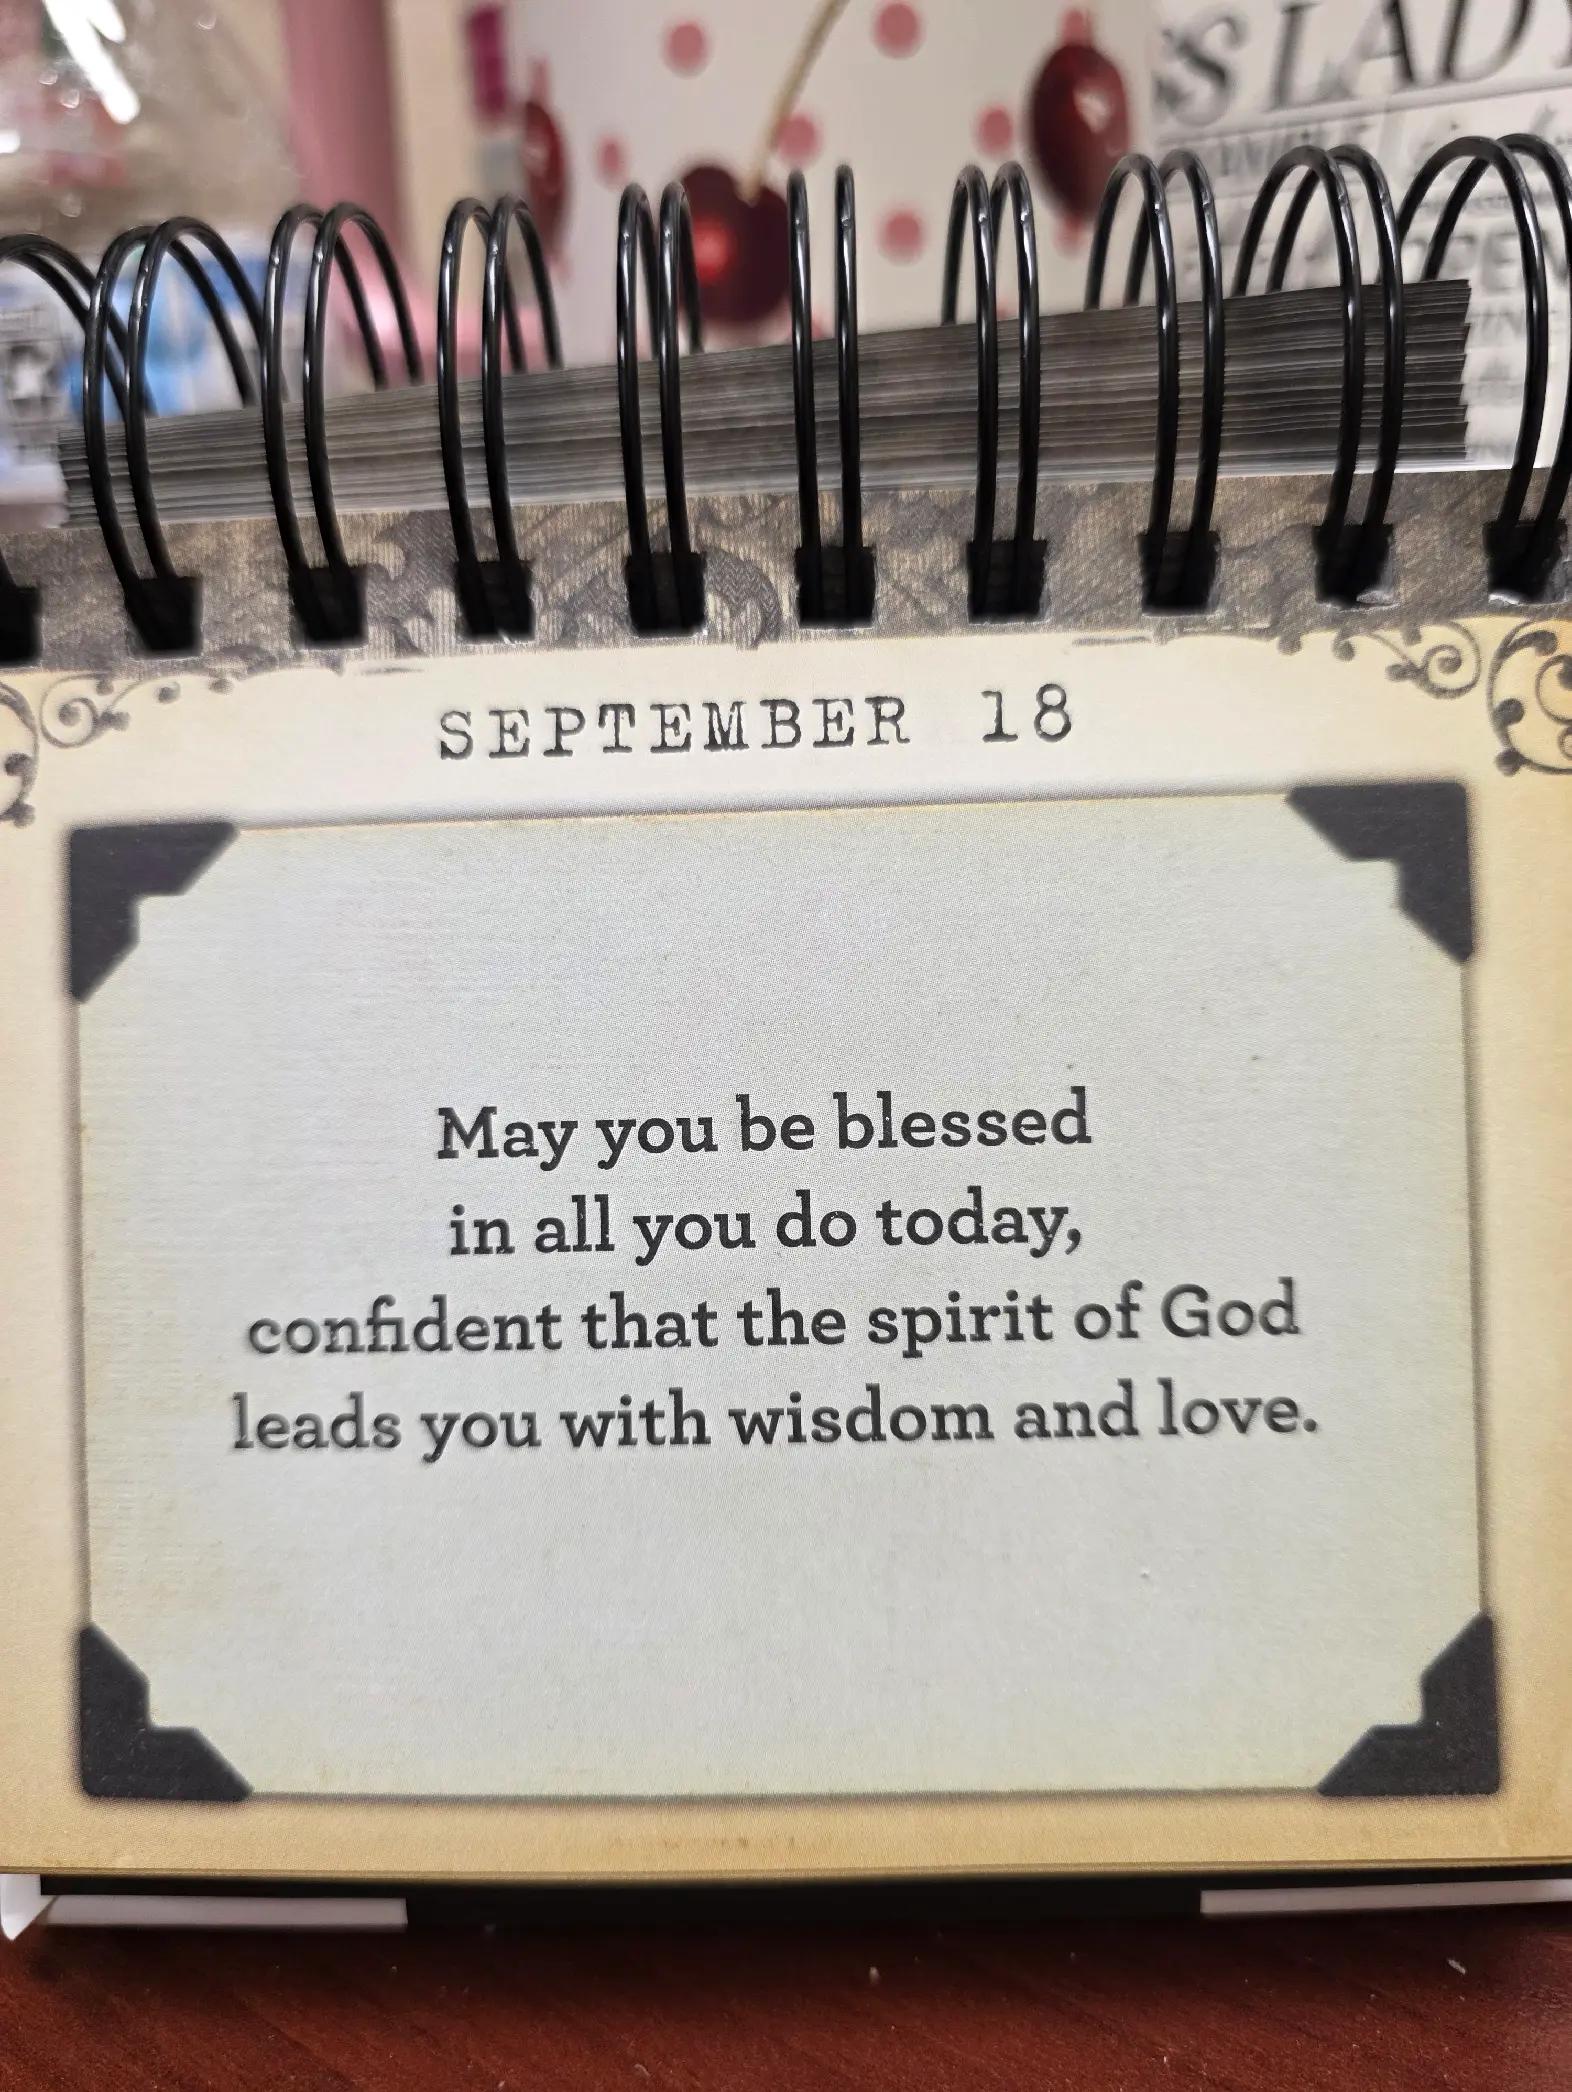 S LADY
SEPTEMBER 18
May you be blessed
in all you do today,
confident that the spirit of God
leads you with wisdom and love.